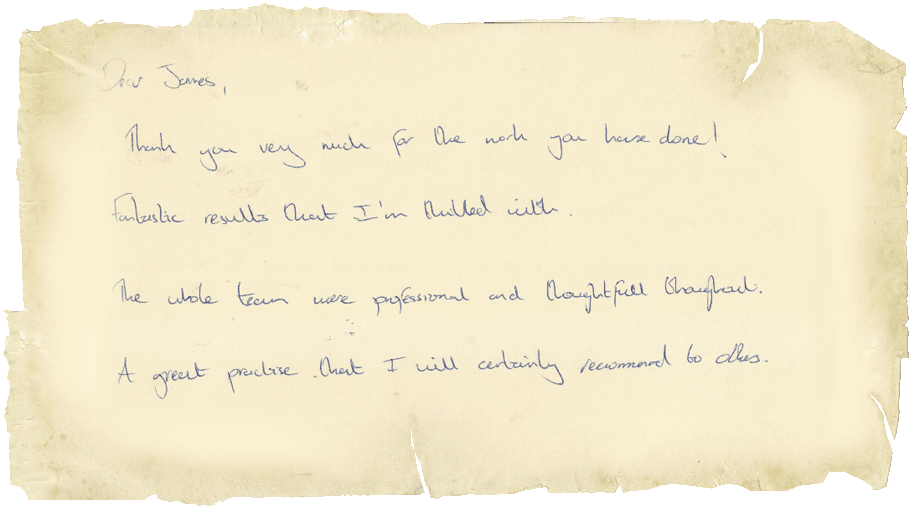 Dear James,
Thank you very much for the work you have done!
Fantastic results that I'm thrilled with.
The whole team were professional and thoughtfull throughout.
A great practise that I will certainly recommend to others.